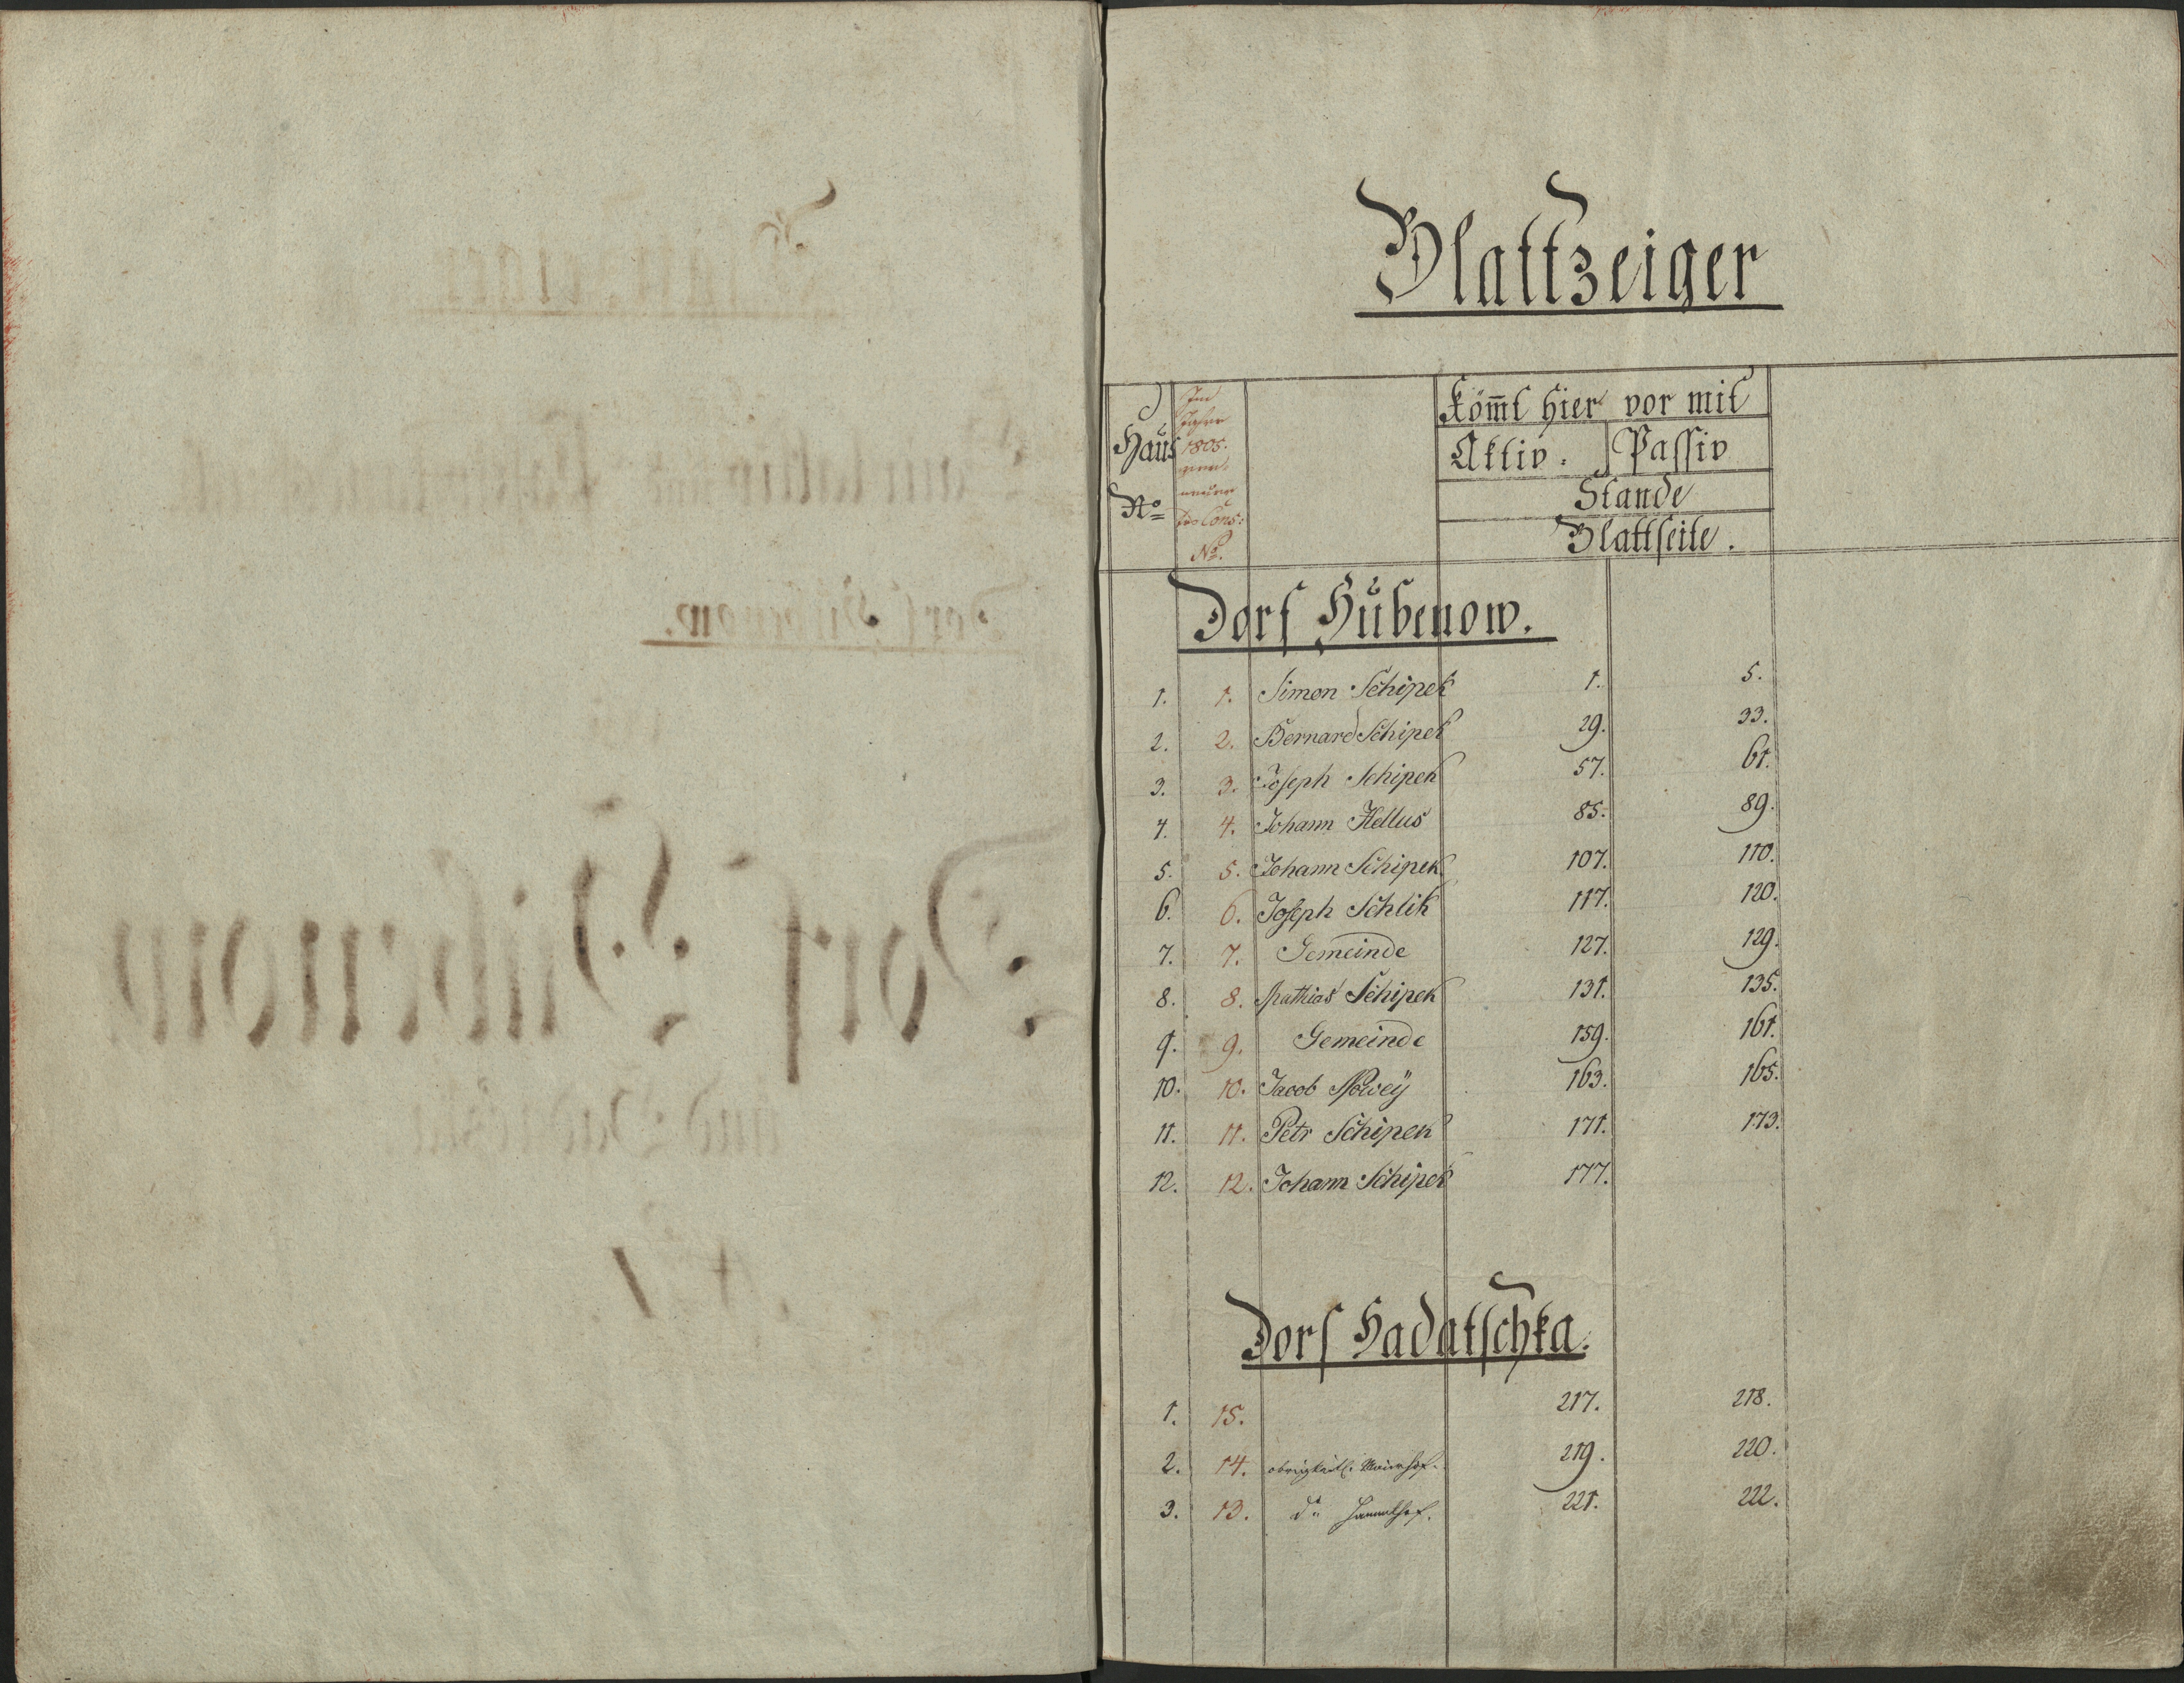 Blattzeiger
Haus
No
Im
Jahre
1805.
Cons:
No.
Kömt hier vor mit
Aktiv. Passiv
Stande
Blattseite.
Dorf Hubenow.
1. 1. Simon Schipek 1. 5.
2. 2. Bernard Schipek 29. 33.
3. 3. Joseph Schipek 57. 61.
4. 4. Johann Hellus 85. 89.
5. 5. Johann Schipek 107. 110.
6. 6. Joseph Schlik 117. 120.
7. 7. Gemeinde 127. 129.
8. 8. Mathias Schipek 131. 135.
9. 9. Gemeinde 159. 161.
10. 10. Jacob 163. 165.
11. 11. Petr Schipek 171. 173.
12. 12. Johann Schipek 177.
Dorf Hadatschka.
1. 15. 217. 218.
2. 14. obrigkeitl: Maierhof. 219. 220.
3. 13. do 221. 222.